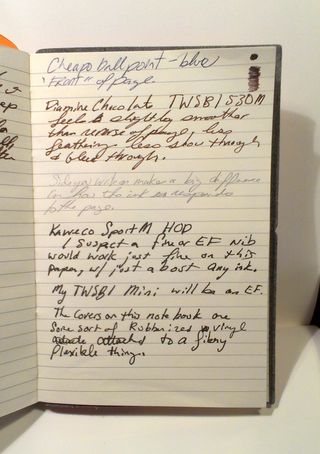 Cheapo ballpoint - blue
"Front" of page.
Diamine Chocolate TWSBI 530M
feels slightly smoother
than reverse of page, less
feathering less show through
& bleed through.
Side you write on makes a big difference
in how the ink responds
to the page.
Kaweco Sport M HOD
I suspect a fine or EF nib
would work just fine on this
paper, w/ just about any ink.
My TWSBI Mini will be an EF.
The covers on this notebook are
some sort of Rubberized vinyl
attached to a fibery
flexible thing.